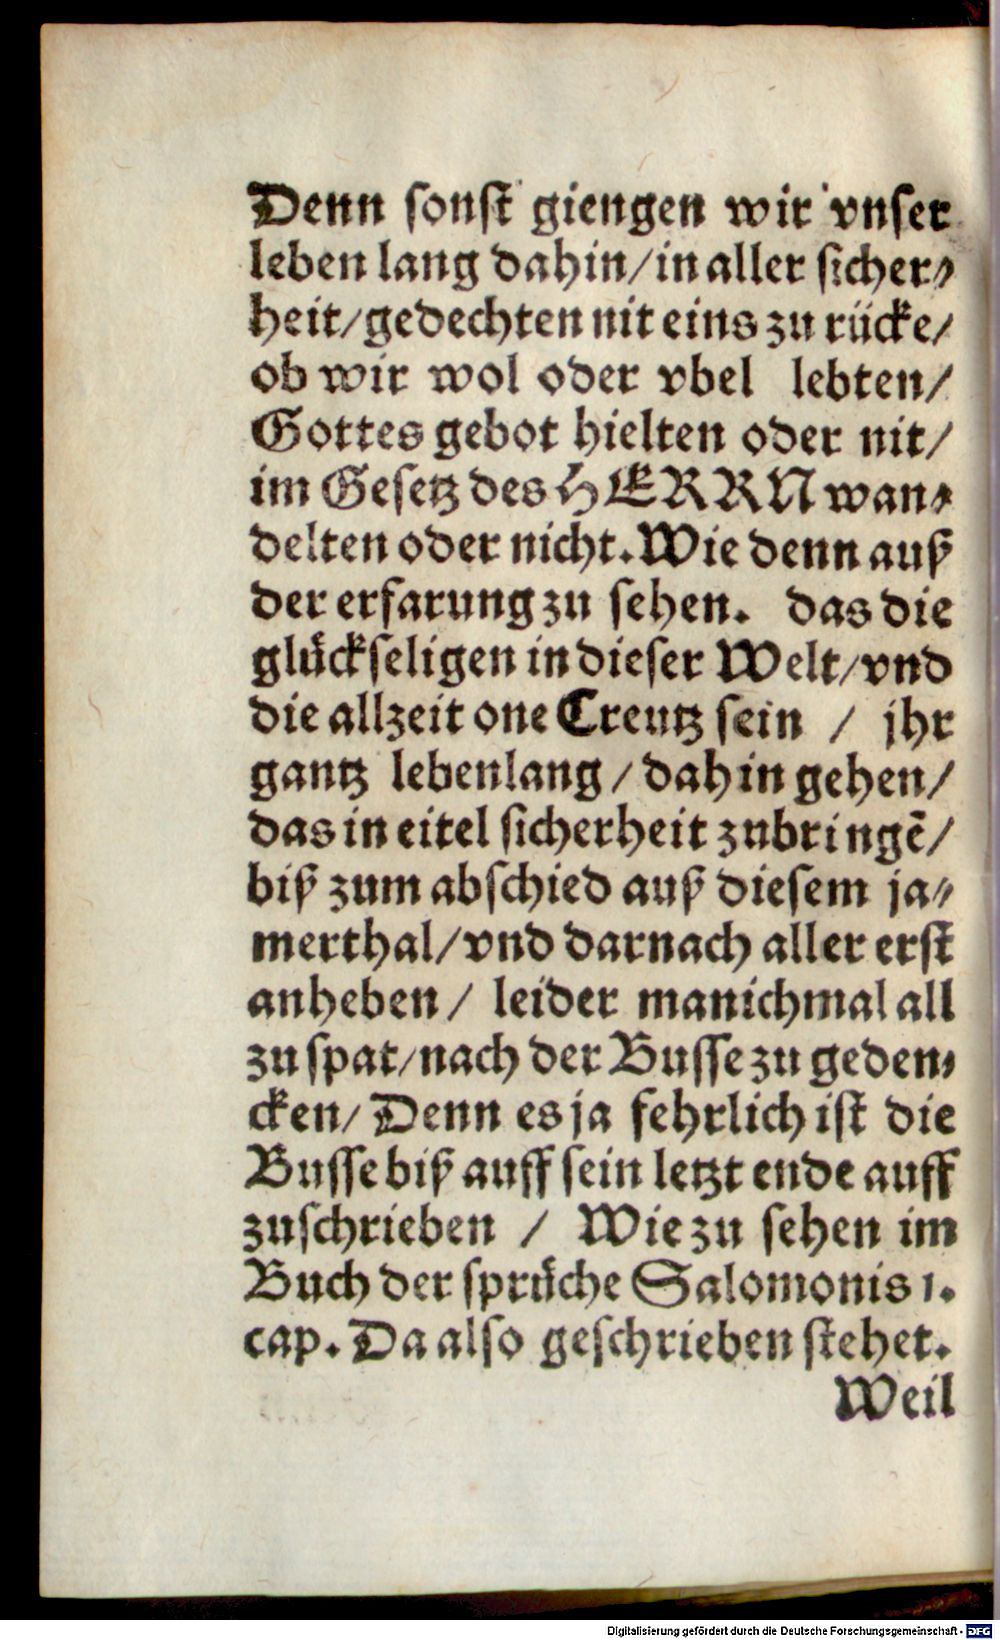 Denn sonst giengen wir vnser
leben lang dahin/in aller sicher⸗
heit/gedechten nit eins zu rücke/
ob wir wol oder vbel lebten/
Gottes gebot hielten oder nit/
im Gesetz des HERRN wan⸗
delten oder nicht. Wie denn auß
der erfarung zu sehen. das die
glückseligen in dieser Welt/vnd
die allzeit one Creutz sein / jhr
gantz lebenlang/dahin gehen/
das in eitel sicherheit zubringẽ/
biß zum abschied auß diesem ja⸗
merthal/vnd darnach aller erst
anheben/ leider manichmal all
zu spat/nach der Busse zu geden⸗
cken/Denn es ja fehrlich ist die
Busse biß auff sein letzt ende auff
zuschrieben / Wie zu sehen im
Buch der sprüche Salomonis 1.
cap. Da also geschrieben stehet.
Weil
Digitalisierung gefördert durch die Deutsche Forschungsgemeinschaft - DFG